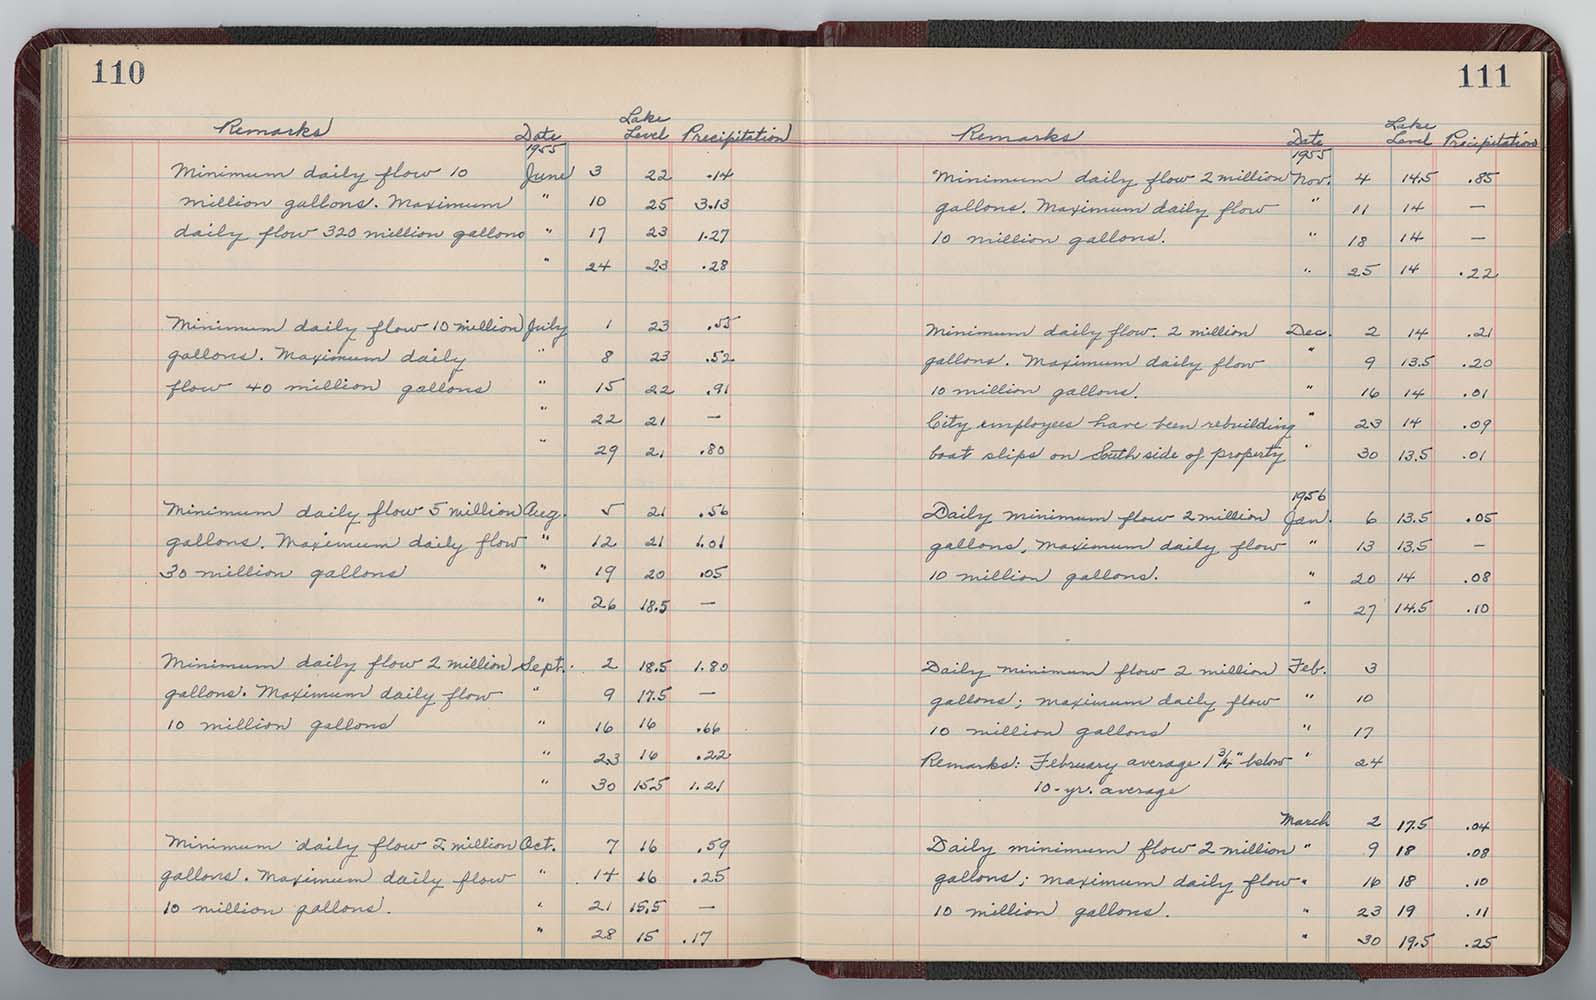 110
Remarks Date Lake Level Precipitation
1955
Minimum daily flow 10 June 3 22 .14
million gallons. Maximum " 10 25 3.13
daily flow 320 million gallons " 17 23 1.27
" 24 23 .28
Minimum daily flow 10 million July 1 23 .55
gallons. Maximum daily " 8 23 .52
flow 40 million gallons " 15 22 .91
" 22 21 —
" 29 21 .80
Minimum daily flow 5 million Aug. 5 21 .56
gallons. Maximum daily flow " 12 21 1.01
30 million gallons " 19 20 .05
" 26 18.5 —
Minimum daily flow 2 million Sept. 2 18.5 1.80
gallons. Maximum daily flow " 9 17.5 —
10 million gallons " 16 16 .66
" 23 16 .22
" 30 15.5 1.21
Minimum daily flow 2 million Oct. 7 16 .59
gallons. Maximum daily flow " 14 16 .25
10 million gallons. " 21 15.5 —
" 28 15 .17
111
Remarks Date Lake Level Precipitation
1955
Minimum daily flow 2 million Nov. 4 14.5 .85
gallons. Maximum daily flow " 11 14 —
10 million gallons. " 18 14 —
" 25 14 .22
Minimum daily flow. 2 million Dec. 2 14 .21
gallons. Maximum daily flow " 9 13.5 .20
10 million gallons. " 16 14 .01
City employees have been rebuilding " 23 14 .09
boat slips on South side of property " 30 13.5 .01
1956
Daily minimum flow 2 million Jan. 6 13.5 .05
gallons, maximum daily flow " 13 13.5 —
10 million gallons. " 20 14 .08
" 27 14.5 .10
Daily minimum flow 2 million Feb. 3
gallons; maximum daily flow " 10
10 million gallons " 17
Remarks: February average 1 3/4" below " 24
10-yr. average
March 2 17.5 .04
Daily minimum flow 2 million " 9 18 .08
gallons; maximum daily flow " 16 18 .10
10 million gallons. " 23 19 .11
" 30 19.5 .25